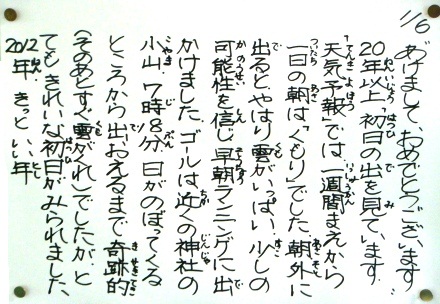 1/6
あけまして、おめでとうございます。
20年以上、初日の出を見ています。
「天気予報」では一週間まえから
一日の朝は「くもり」でした。朝外に
出ると、やはり雲がいっぱい、少しの
可能性を信じ、早朝ランニングに出
かけました。ゴールは近くの神社の
小山、7時8分、日がのぼってくる
ところから出おえるまで、奇跡的
(そのあとすぐ雲がくれ)でしたが、と
てもきれいな初日がみられました、
2012年、きっといい年